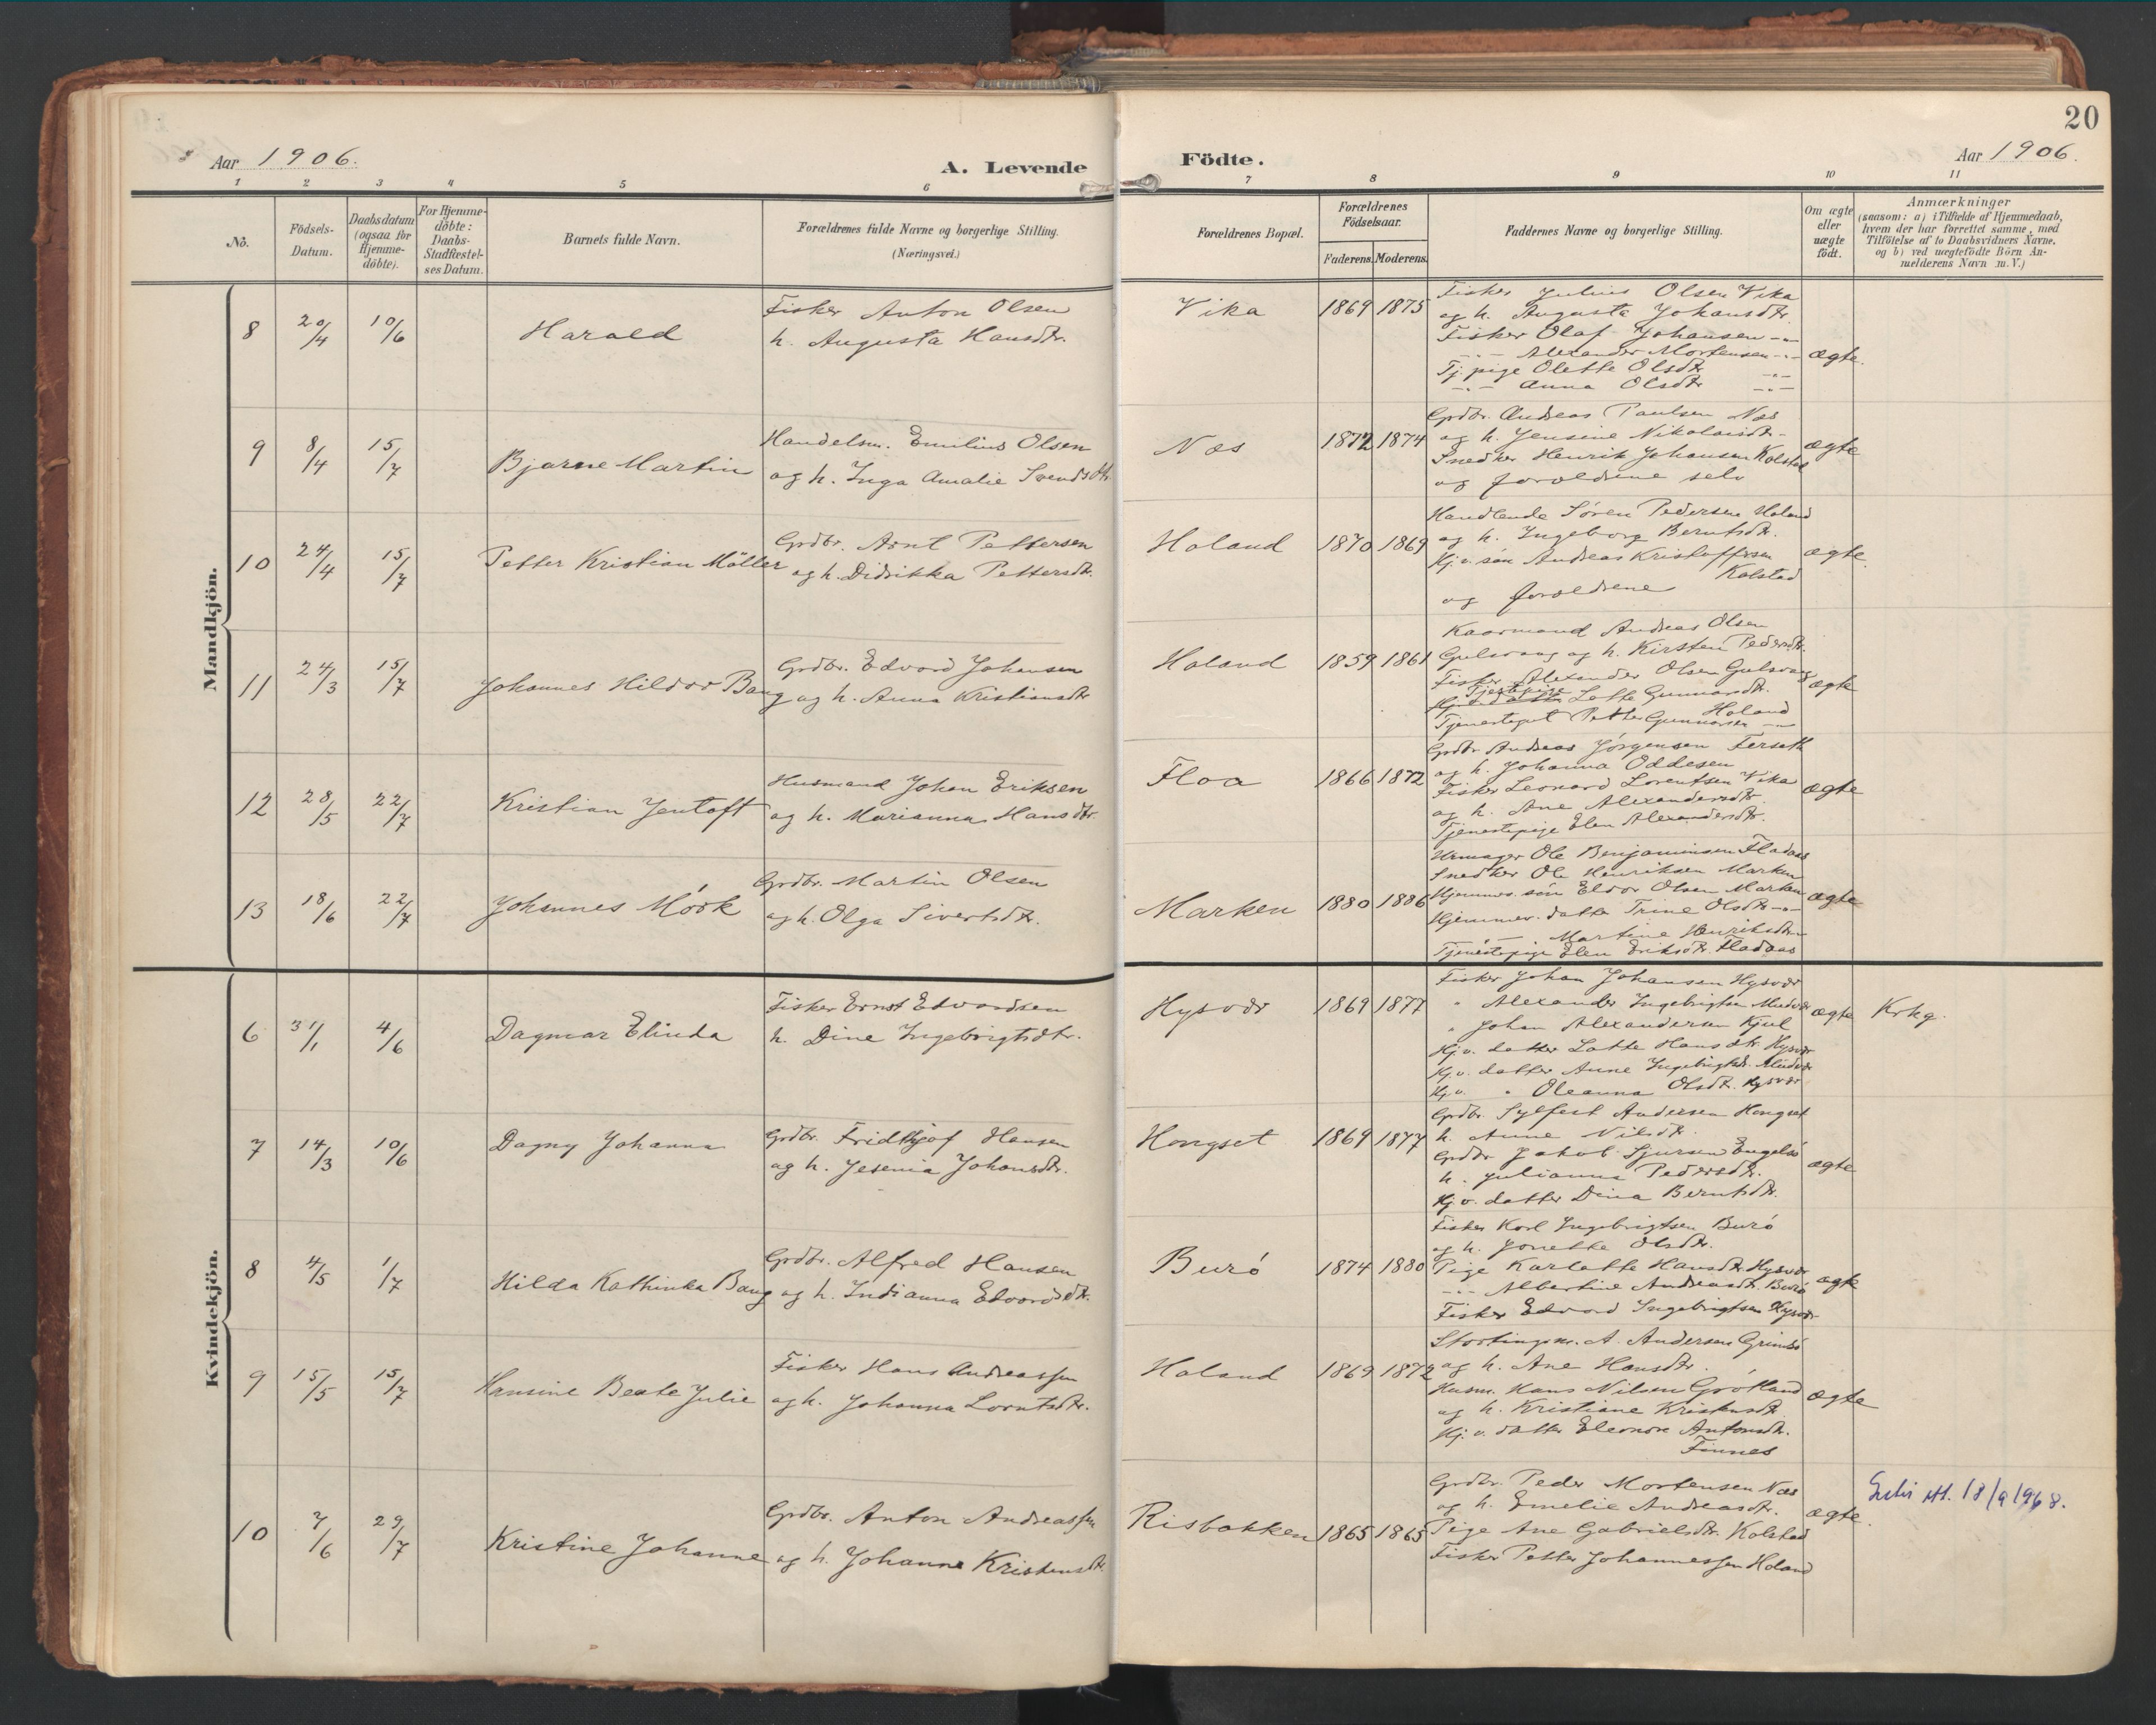 20
Aar 1906.
A. Levende
Födte.
Aar 1906.
1 2 3 4 5 6 7 8 9 10 11
No.
Födsels-
Datum.
Daabsdatum
(ogsaa for
Hjemme-
döbte).
For Hjemme-
döbte:
Daabs-
Stadfæstel-
ses Datum.
Barnets fulde Navn.
Forældrenes fulde Navne og borgerlige Stilling.
(Næringsvei.)
Forældrenes Bopæl.
Forældrenes
Födselsaar.
Faderens. Moderens.
Faddernes Navne og borgerlige Stilling.
Om ægte
eller
uægte
födt.
Anmærkninger
(saasom: a) i Tilfælde af Hjemmedaab,
hvem der har forrettet samme, med
Tilföielse af to Daabsvidners Navne.
og b) ved uægtefödte Börn An-
melderens Navn m.V.)
Mandkjön.
8 20/4 10/6 Harald
Fisker Anton Olsen
h. Augusta Hansdtr.
Vika 1869 1875
Fisker Julius Olsen Vika
og h. Augusta Johansdtr.
Fisker Olaf Johansen -"-
-"- Alexander Mortensen -"-
Tj. pige Olette Olsdtr -"-
-"- Anna Olsdtr -"-
ægte.
9 8/4 15/7 Bjarne Martin
Handelsm. Emilius Olsen
og h. Inga Amalie Svendsdtr.
Næs 1872 1874
Grdbr. Andreas Paulsen Næs
og h. Jensine Nikolaisdtr-
Snedker Henrik Johansen Kolstad
og forældrene selv
ægte
10 24/4 15/7 Petter Kristian Möller
Grdbr. Arnt Pettersen
og h. Didrikka Pettersdtr.
Holand 1870 1869
Handlende Sören Pedersen Holand
og h. Ingeborg Berntsdtr.
Hj. v. sön Andreas Kristoffersen
Kolstad
og forældrene
ægte
11 24/3 15/7 Johannes Hildor Bang
Grdbr. Edvard Johansen
og h. Anna Kristiansdtr
Holand 1859 1861
Kaarmand Andreas Olsen
Gulsvaag og h. Kirsten Pedersdtr.
Fisker Alexander Olsen Gulsvaag
Tjenestepige Lotte Gunnarsdtr.
Holand
Tjenestegut Petter Gunnarsen -"-
ægte
12 28/5 22/7 Kristian Jentoft
Husmand Johan Eriksen
og h. Marianna Hansdtr.
Floa 1866 1872
Grdbr Andreas Jörgensen Ferseth
og h. Johanna Oddesen
Fisker Leonard Lorentsen Vika
og h. Ane Alexandersdtr.
Tjenestepige Elen Alexandersdtr.
ægte
13 18/6 22/7 Johannes Mörk
Grdbr. Martin Olsen
og h. Olga Sivertsdtr.
Marken 1880 1886
Urmager Ole Benjaminsen Fladaas
Snedker Ole Henriksen Marken
Hjemmev. sön Eldor Olsen Marken
Hjemmev. datter Trine Olsdtr -"-
-"- Martine Henriksdtr
Tjenestepige Elen Eriksdtr. Fladaas
ægte
Kvindekjön.
6 31/1 4/6 Dagmar Elinda
Fisker Ernst Edvardsen
h. Dine Ingebrigtsdtr.
Hysvær 1869 1877
Fisker Johan Johansen Hysvær
" Alexander Ingebrigtsen Mudvær
" Johan Alexandersen Kjul
Hj. v. datter Lotte Hansdtr. Hysvær
Hj. v. datter Anne Ingebrigtsdtr. Mudvær
Hj. v. " Oleanna Olsdtr. Hysvær
ægte Krkg.
7 14/3 10/6 Dagny Johanna
Grdbr. Fridthjof Hansen
og h. Jesenia Johansdtr.
Hongset 1869 1877
Grdbr. Sylfest Andersen Hongset
h. Anne Nilsdtr.
Grdbr Jakob Sjursen Engelsö
h. Julianna Pedersdtr.
Hj. v. datter Dina Berntsdtr.
ægte
8 4/5 1/7 Hilda Kathinka Bang
Grdbr. Alfred Hansen
og h. Indianna Edvardsdtr.
Burö 1874 1880
Fisker Karl Ingebrigtsen Burö
og h. Jonette Olsdtr.
Pige Karlotte Hansdtr. Hysvær
-"- Albertine Andreasdtr. Burö
Fisker Edvard Ingebrigtsen Hysvær
ægte
9 15/5 15/7 Hansine Beate Julie
Fisker Hans Andreassen
og h. Johanna Lorntsdtr.
Holand 1869 1872
Stortingsm. A. Andersen Grimsö
og h. Ane Hansdtr.
Husm. Hans Nilsen Grötland
og h. Kristiane Kristensdtr.
Hj. v. datter Eleonore Antonsdtr.
Finnes
ægte
10 7/6 29/7 Kristine Johanne
Grdbr. Anton Andreassen
og h. Johanne Kristensdtr.
Risbakken 1865 1865
Grdbr. Peder Mortensen Næs
og h. Emelie Andreasdtr.
Pige Ane Gabrielsdtr. Kolstad
Fisker Petter Johannessen Holand
ægte.
att. 18/9 1968.